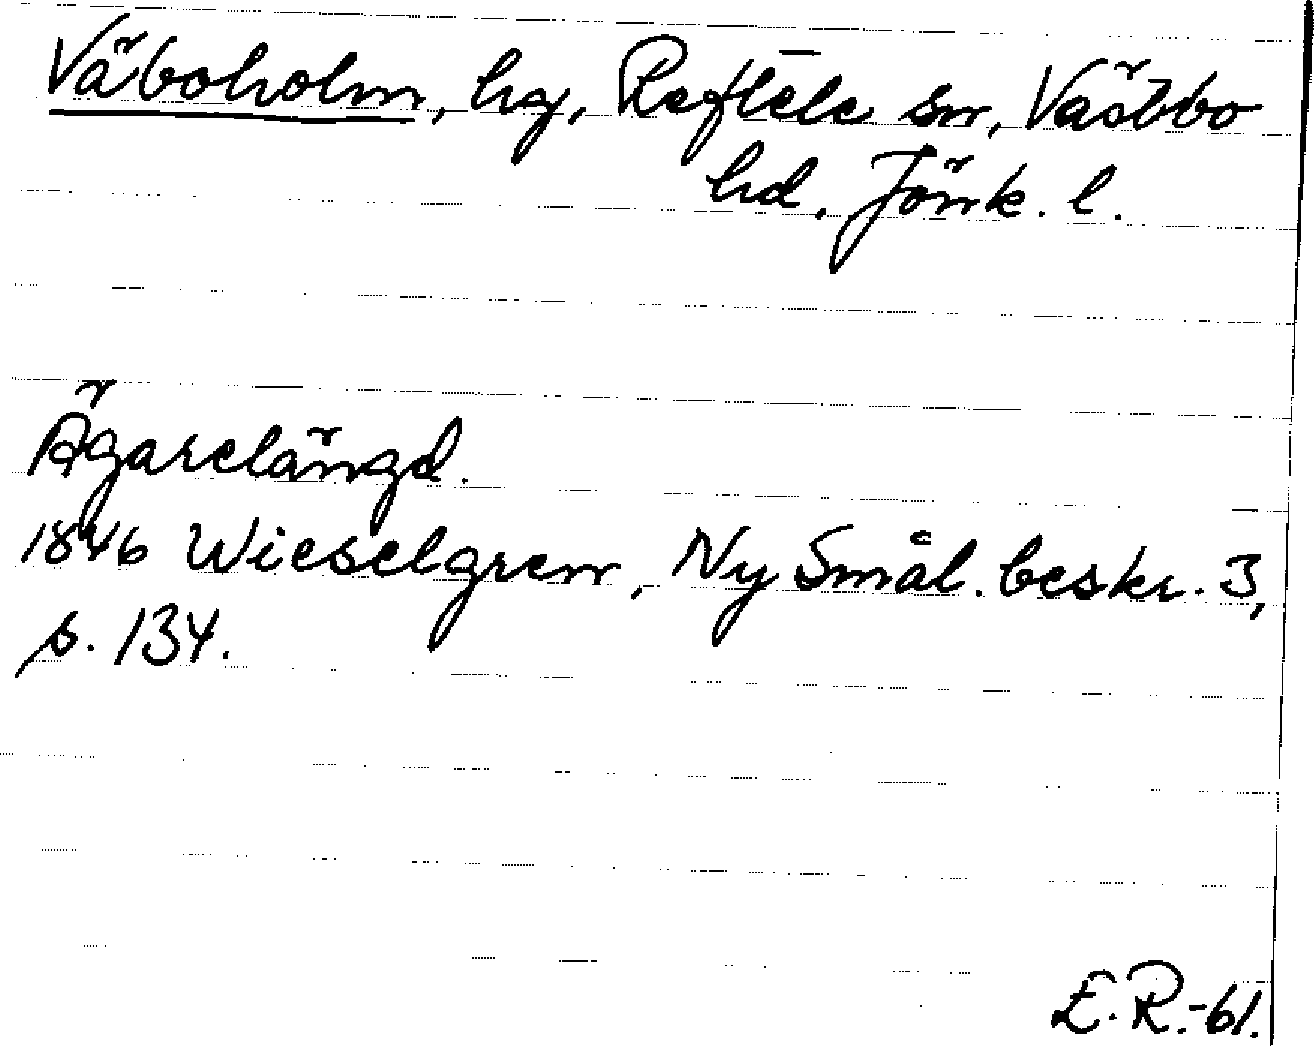 Väboholm, hg, Reftele sn, Västbo
hd. Jönk. l.
Ägarelängd.
1846 Wieselgren, Ny Smål. beskr. 3,
s. 134.
E.R.-61.